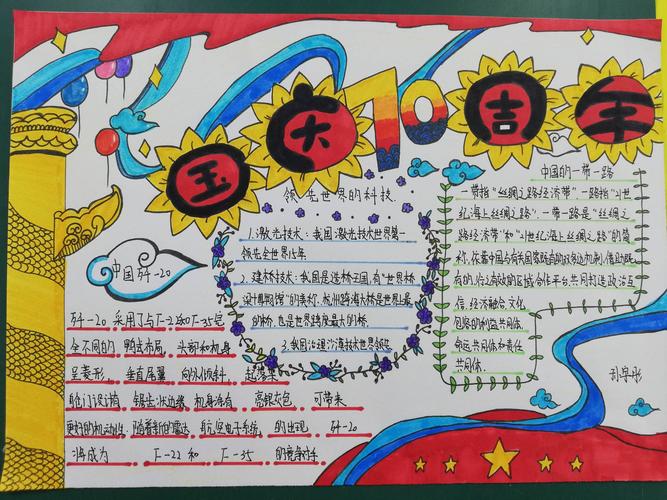 国庆70周年
领先世界的科技
1.激光技术:我国激光技术世界第一
领先全世界15年
2.建桥技术:我国是造桥王国,有“世界桥
梁博物馆”的美称,杭州跨海大桥是世界上最
的桥,也是世界跨度最大的桥。
3.我国治理沙漠技术世界领先
中国歼-20
歼-20采用了与F-22和F-35完
全不同的鸭式布局,头部和机身
呈菱形,垂直尾翼向外倾斜,起落架
舱门设计为锯齿状边缘,机身涂有高亮银灰色,可带来
更好的机动性,随着新的雷达航空电子系统的出现,歼-20
将成为F-22和F-35的竞争对手
中国的一带一路
一带指“丝绸之路经济带”一路指“21世
纪海上丝绸之路”,一带一路是“丝绸之
路经济带”和“21世纪海上丝绸之路”的简
称,依靠中国与有关国家既有的双多边机制,借助既
有的,行之有效的区域合作平台,共同打造政治互
信,经济融合,文化
包容的利益共同体,
命运共同体和责任
共同体.